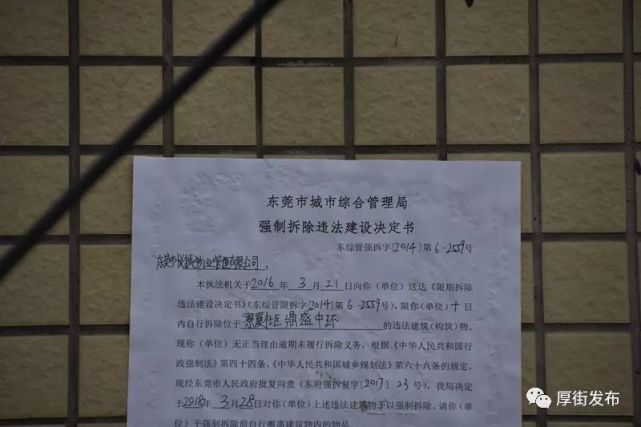 东莞市城市综合管理局
强制拆除违法建设决定书
东综管强拆字[2014]第6-2559号
东莞市 物业管理有限公司：
本执法机关于2016年3月21日向你（单位）送达《限期拆除
违法建设决定书》（东综管限拆字[2014]第6-2559号），限你（单位）十日
内自行拆除位于寮厦社区鼎盛中环的违法建筑（构筑）物，
现你（单位）无正当理由逾期未履行拆除义务，根据《中华人民共和国行
政强制法》第四十四条、《中华人民共和国城乡规划法》第六十八条的规定，
现经东莞市人民政府批复同意（东府强拆复字[2017]23号），我局决定
于2018年3月28日对你（单位）上述违法建筑物予以强制拆除。请你（单
位）于强制拆除前自行搬离建筑物内的物品
厚街发布